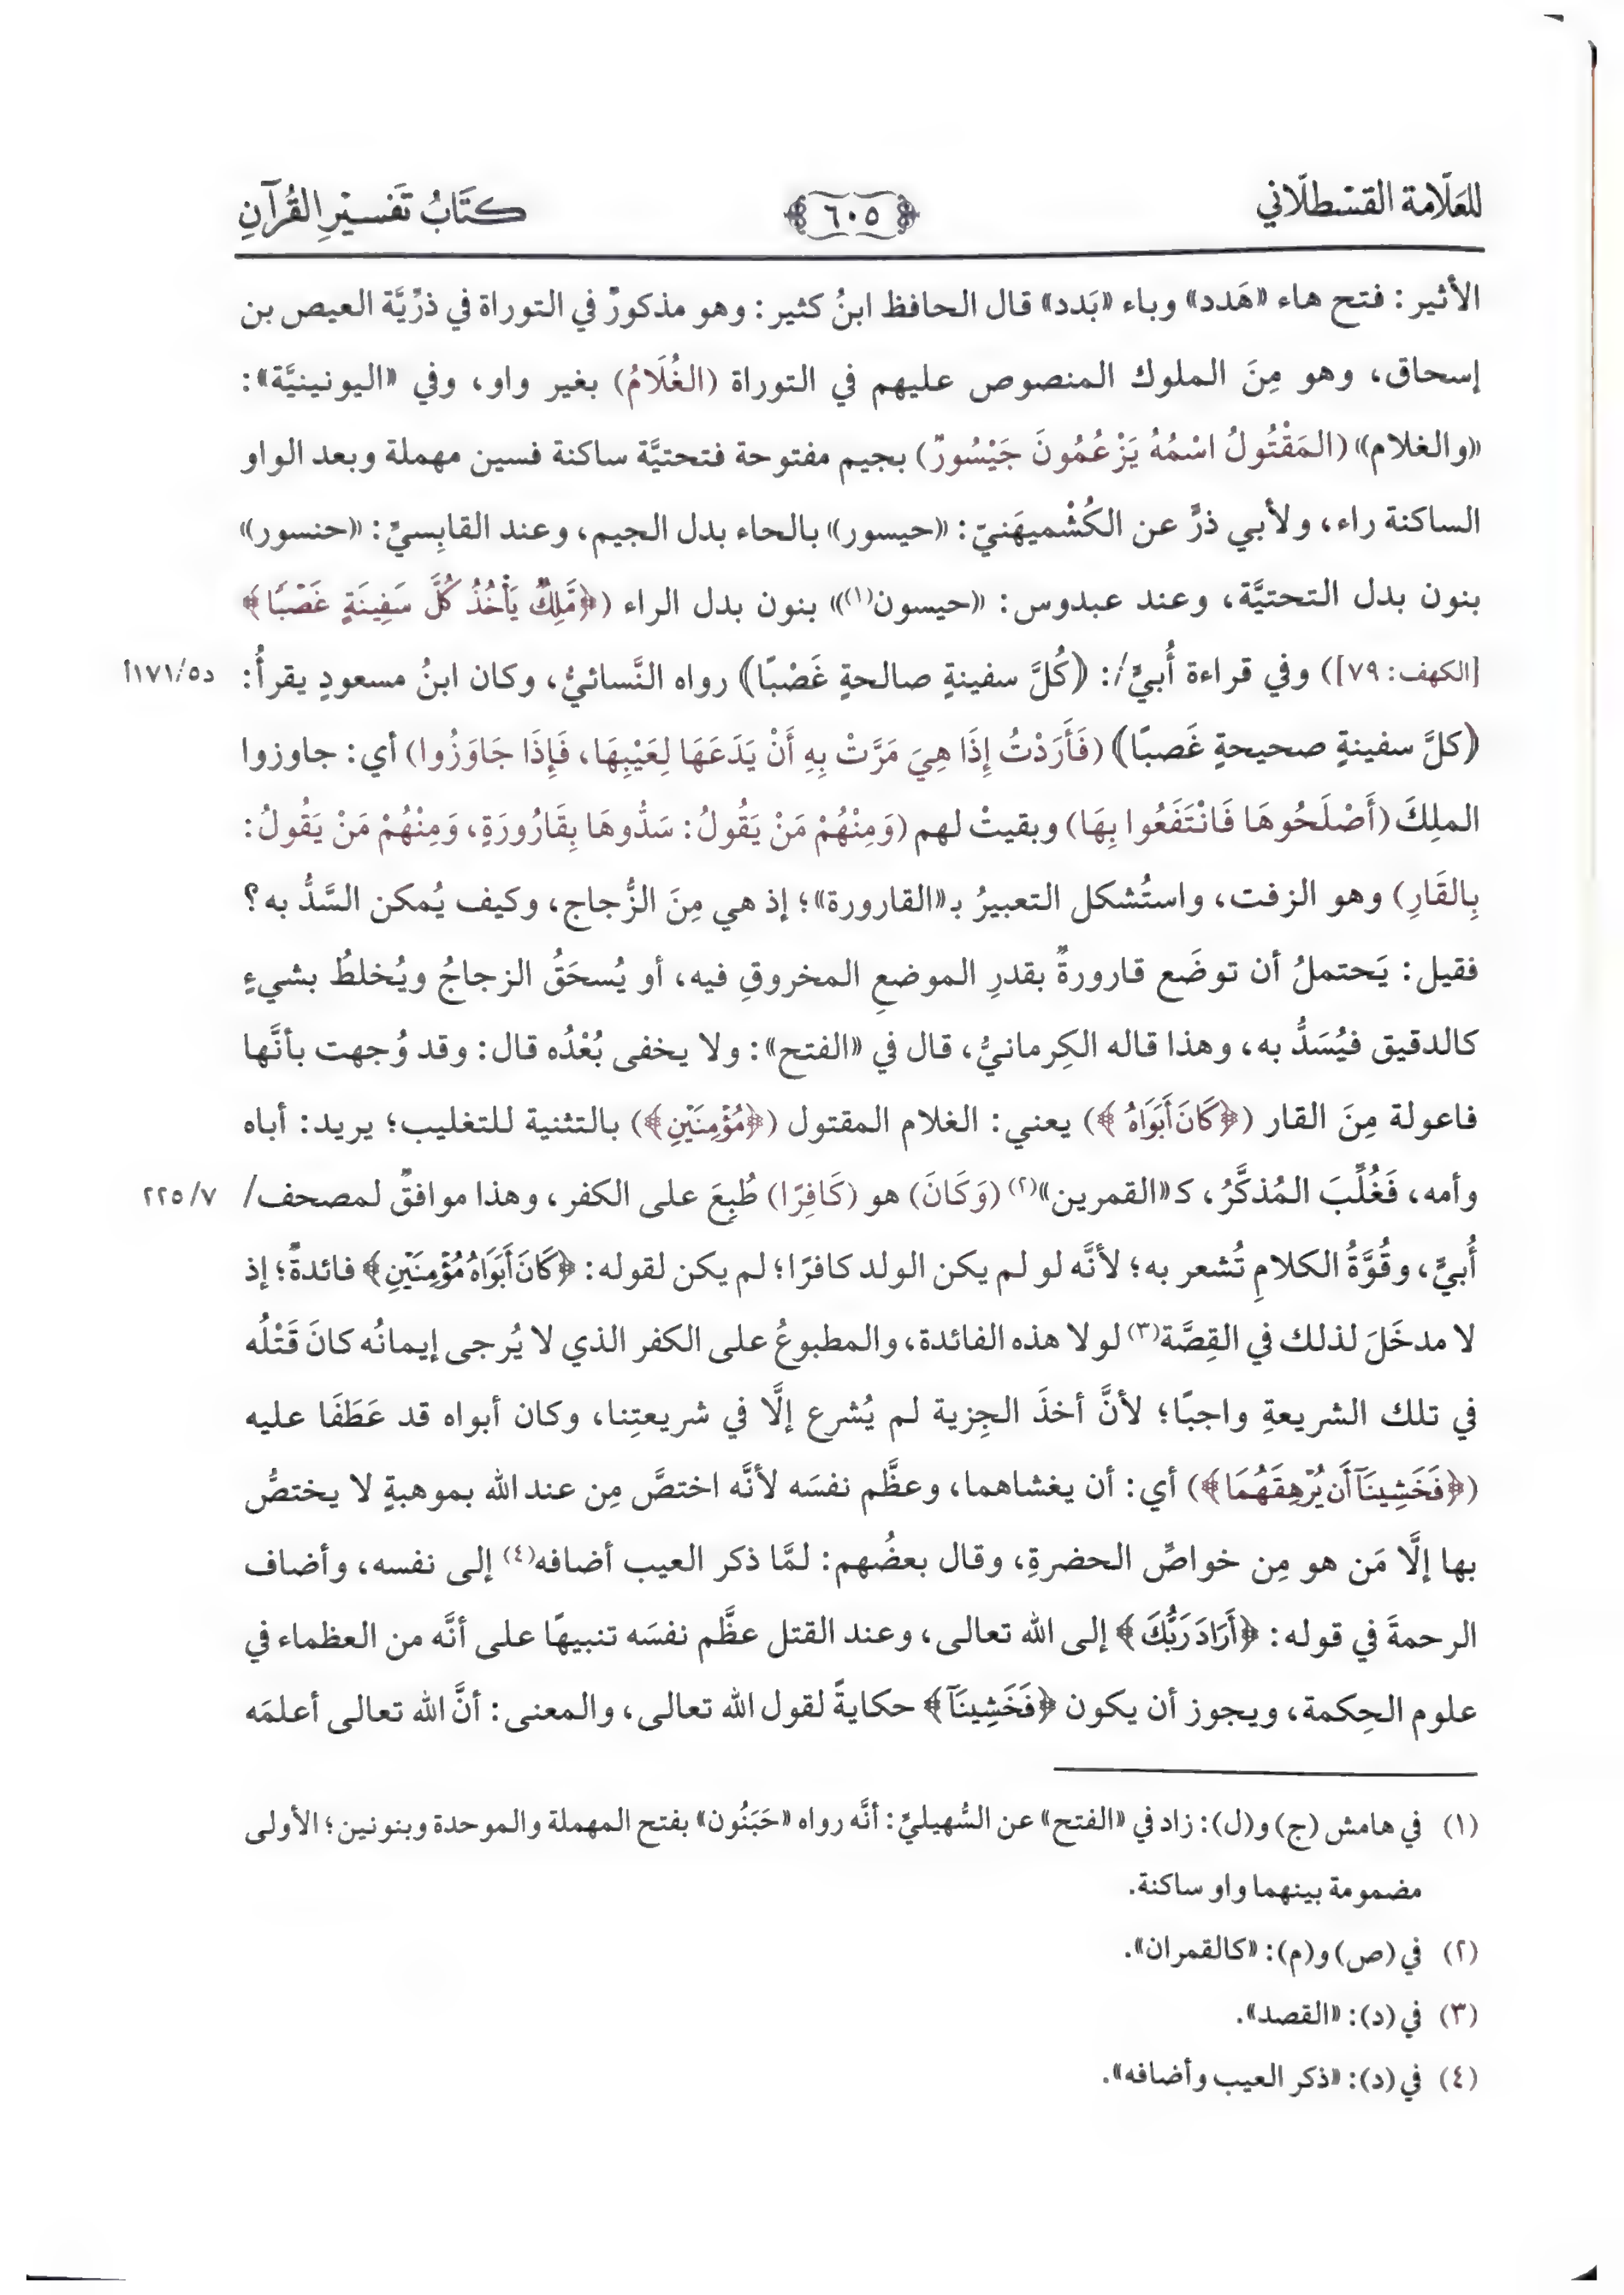 للعلامة القسطلاني ٦٠٥ كتاب تفسير القرآن
الأثير: فتح هاء «هَدد» وباء «بَدد» قال الحافظ ابنُ كثير: وهو مذكورٌ في التوراة في ذرِّيَّة العيص بن
إسحاق، وهو مِنَ الملوك المنصوص عليهم في التوراة (الغُلَامُ) بغير واو، وفي «اليونينيَّة»:
«والغلام» (المَقْتُولُ اسْمُهُ يَزْعُمُونَ جَيْسُورٌ) بجيم مفتوحة فتحتيَّة ساكنة فسين مهملة وبعد الواو
الساكنة راء، ولأبي ذرٍّ عن الكُشْميهَنيّ: «حيسور» بالحاء بدل الجيم، وعند القابِسيِّ: «حنسور»
بنون بدل التحتيَّة، وعند عبدوس: «حيسون(١)» بنون بدل الراء (﴿مَّلِكٌ يَأْخُذُ كُلَّ سَفِينَةٍ غَصْبًا﴾
[الكهف: ٧٩]) وفي قراءة أُبيٍّ/: (كُلَّ سفينةٍ صالحةٍ غَصْبًا) رواه النَّسائيُّ، وكان ابنُ مسعودٍ يقرأُ: د٥/١٧١أ
(كلَّ سفينةٍ صحيحةٍ غَصبًا) (فَأَرَدْتُ إِذَا هِيَ مَرَّتْ بِهِ أَنْ يَدَعَهَا لِعَيْبِهَا، فَإِذَا جَاوَزُوا) أي: جاوزوا
الملِكَ (أَصْلَحُوهَا فَانْتَفَعُوا بِهَا) وبقيتْ لهم (وَمِنْهُمْ مَنْ يَقُولُ: سَدُّوهَا بِقَارُورَةٍ، وَمِنْهُمْ مَنْ يَقُولُ:
بِالقَارِ) وهو الزفت، واستُشكل التعبيرُ بـ«القارورة»؛ إذ هي مِنَ الزُّجاج، وكيف يُمكن السَّدُّ به؟
فقيل: يَحتملُ أن توضَع قارورةٌ بقدرِ الموضعِ المخروقِ فيه، أو يُسحَقُ الزجاجُ ويُخلطُ بشيءٍ
كالدقيق فيُسَدُّ به، وهذا قاله الكِرمانيُّ، قال في «الفتح»: ولا يخفى بُعْدُه قال: وقد وُجهت بأنَّها
فاعولة مِنَ القار (﴿كَانَ أَبَوَاهُ﴾) يعني: الغلام المقتول (﴿مُؤْمِنَيْنِ﴾) بالتثنية للتغليب؛ يريد: أباه
وأمه، فَغُلِّبَ المُذكَّرُ، كـ«القمرين»(٢) (وَكَانَ) هو (كَافِرًا) طُبِعَ على الكفر، وهذا موافقٌ لمصحف/ ٢٢٥/٧
أُبيٍّ، وقُوَّةُ الكلامِ تُشعر به؛ لأنَّه لو لم يكن الولد كافرًا؛ لم يكن لقوله: ﴿كَانَ أَبَوَاهُ مُؤْمِنَيْنِ﴾ فائدةٌ؛ إذ
لا مدخَلَ لذلك في القِصَّة(٣) لولا هذه الفائدة، والمطبوعُ على الكفر الذي لا يُرجى إيمانُه كانَ قَتْلُه
في تلك الشريعةِ واجبًا؛ لأنَّ أخذَ الجِزية لم يُشرع إلَّا في شريعتِنا، وكان أبواه قد عَطَفَا عليه
(﴿فَخَشِينَآ أَن يُرْهِقَهُمَا﴾) أي: أن يغشاهما، وعظَّم نفسَه لأنَّه اختصَّ مِن عند الله بموهبةٍ لا يختصُّ
بها إلَّا مَن هو مِن خواصِّ الحضرةِ، وقال بعضُهم: لمَّا ذكر العيب أضافه(٤) إلى نفسه، وأضاف
الرحمةَ في قوله: ﴿أَرَادَ رَبُّكَ﴾ إلى الله تعالى، وعند القتل عظَّم نفسَه تنبيهًا على أنَّه من العظماء في
علوم الحِكمة، ويجوز أن يكون ﴿فَخَشِينَآ﴾ حكايةً لقول الله تعالى، والمعنى: أنَّ الله تعالى أعلمَه
(١) في هامش (ج) و(ل): زاد في «الفتح» عن السُّهيليِّ: أنَّه رواه «حَبَنُون» بفتح المهملة والموحدة وبنونين؛ الأولى
مضمومة بينهما واو ساكنة.
(٢) في (ص) و(م): «كالقمران».
(٣) في (د): «القصد».
(٤) في (د): «ذكر العيب وأضافه».